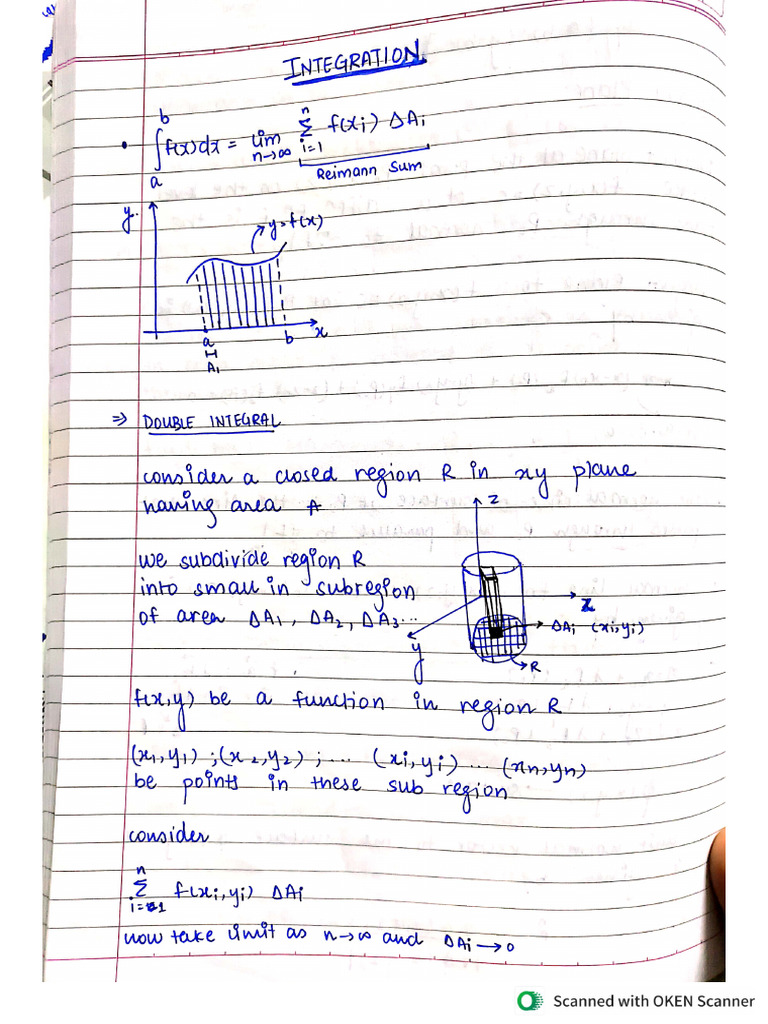 INTEGRATION
∫ₐᵇ f(x) dx = lim n→∞ Σ i=1 n f(xi) ΔAi
Reimann Sum
y
y=f(x)
a
b
x
A1
⇒ DOUBLE INTEGRAL
consider a closed region R in xy plane
having area A
z
we subdivide region R
into small in subregion
of area ΔA1, ΔA2, ΔA3...
ΔAi (xi,yi)
y
R
f(x,y) be a function in region R
(x1,y1) ; (x2,y2) ; ... (xi,yi) ... (xn,yn)
be points in these sub region
consider
Σ i=1 n f(xi,yi) ΔAi
now take limit as n→∞ and ΔAi→0
Scanned with OKEN Scanner